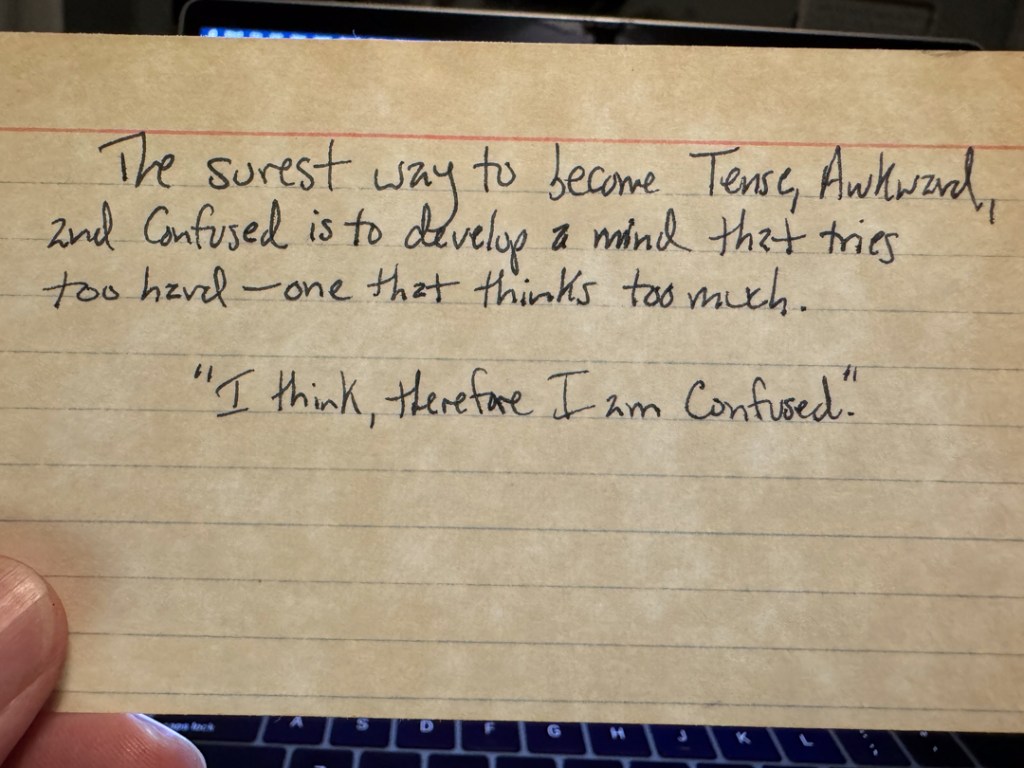 The surest way to become Tense, Awkward,
and Confused is to develop a mind that tries
too hard — one that thinks too much.
"I think, therefore I am Confused."
A S D F G H J K L ; : " '